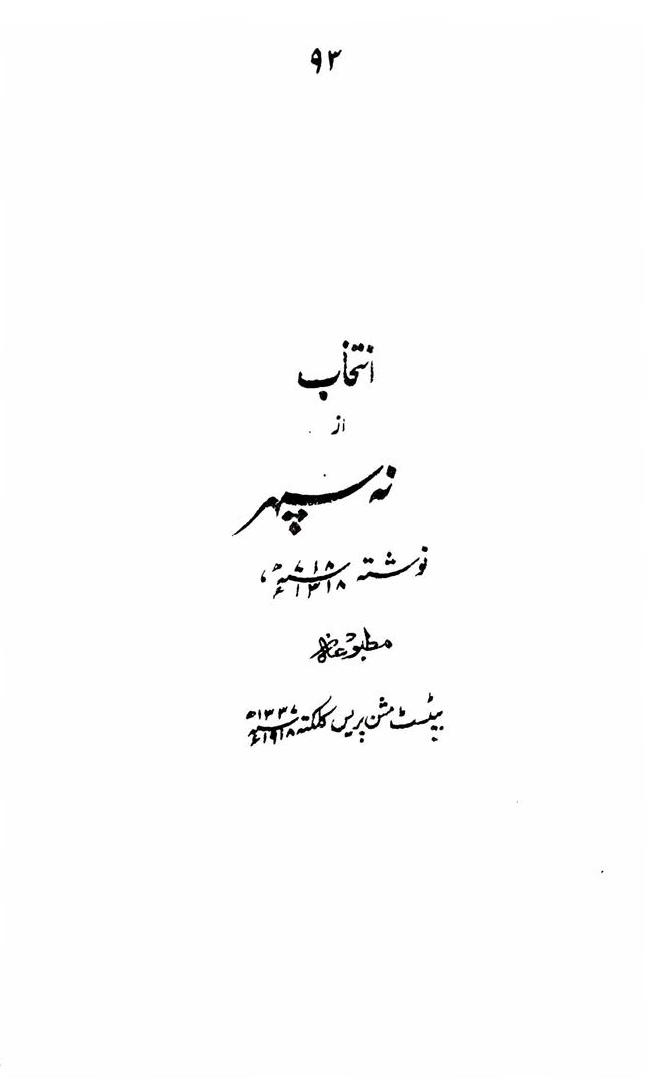 ۹۳
انتخاب
از
نہ سپہر
نوشتہ ۷۱۸ھ ۱۳۱۸ء
مطبوعہ
بپٹسٹ مشن پریس کلکتہ ۱۳۳۷ھ ۱۹۱۸ء